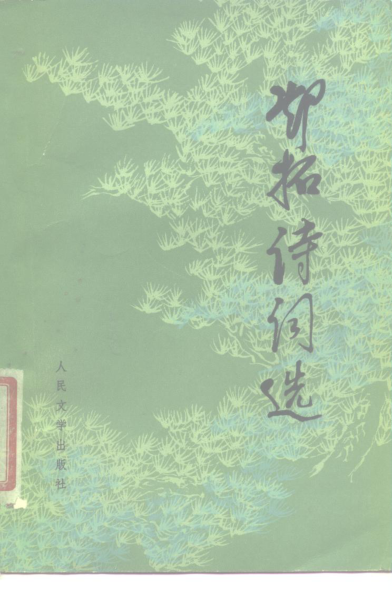 邓拓诗词选
人民文学出版社